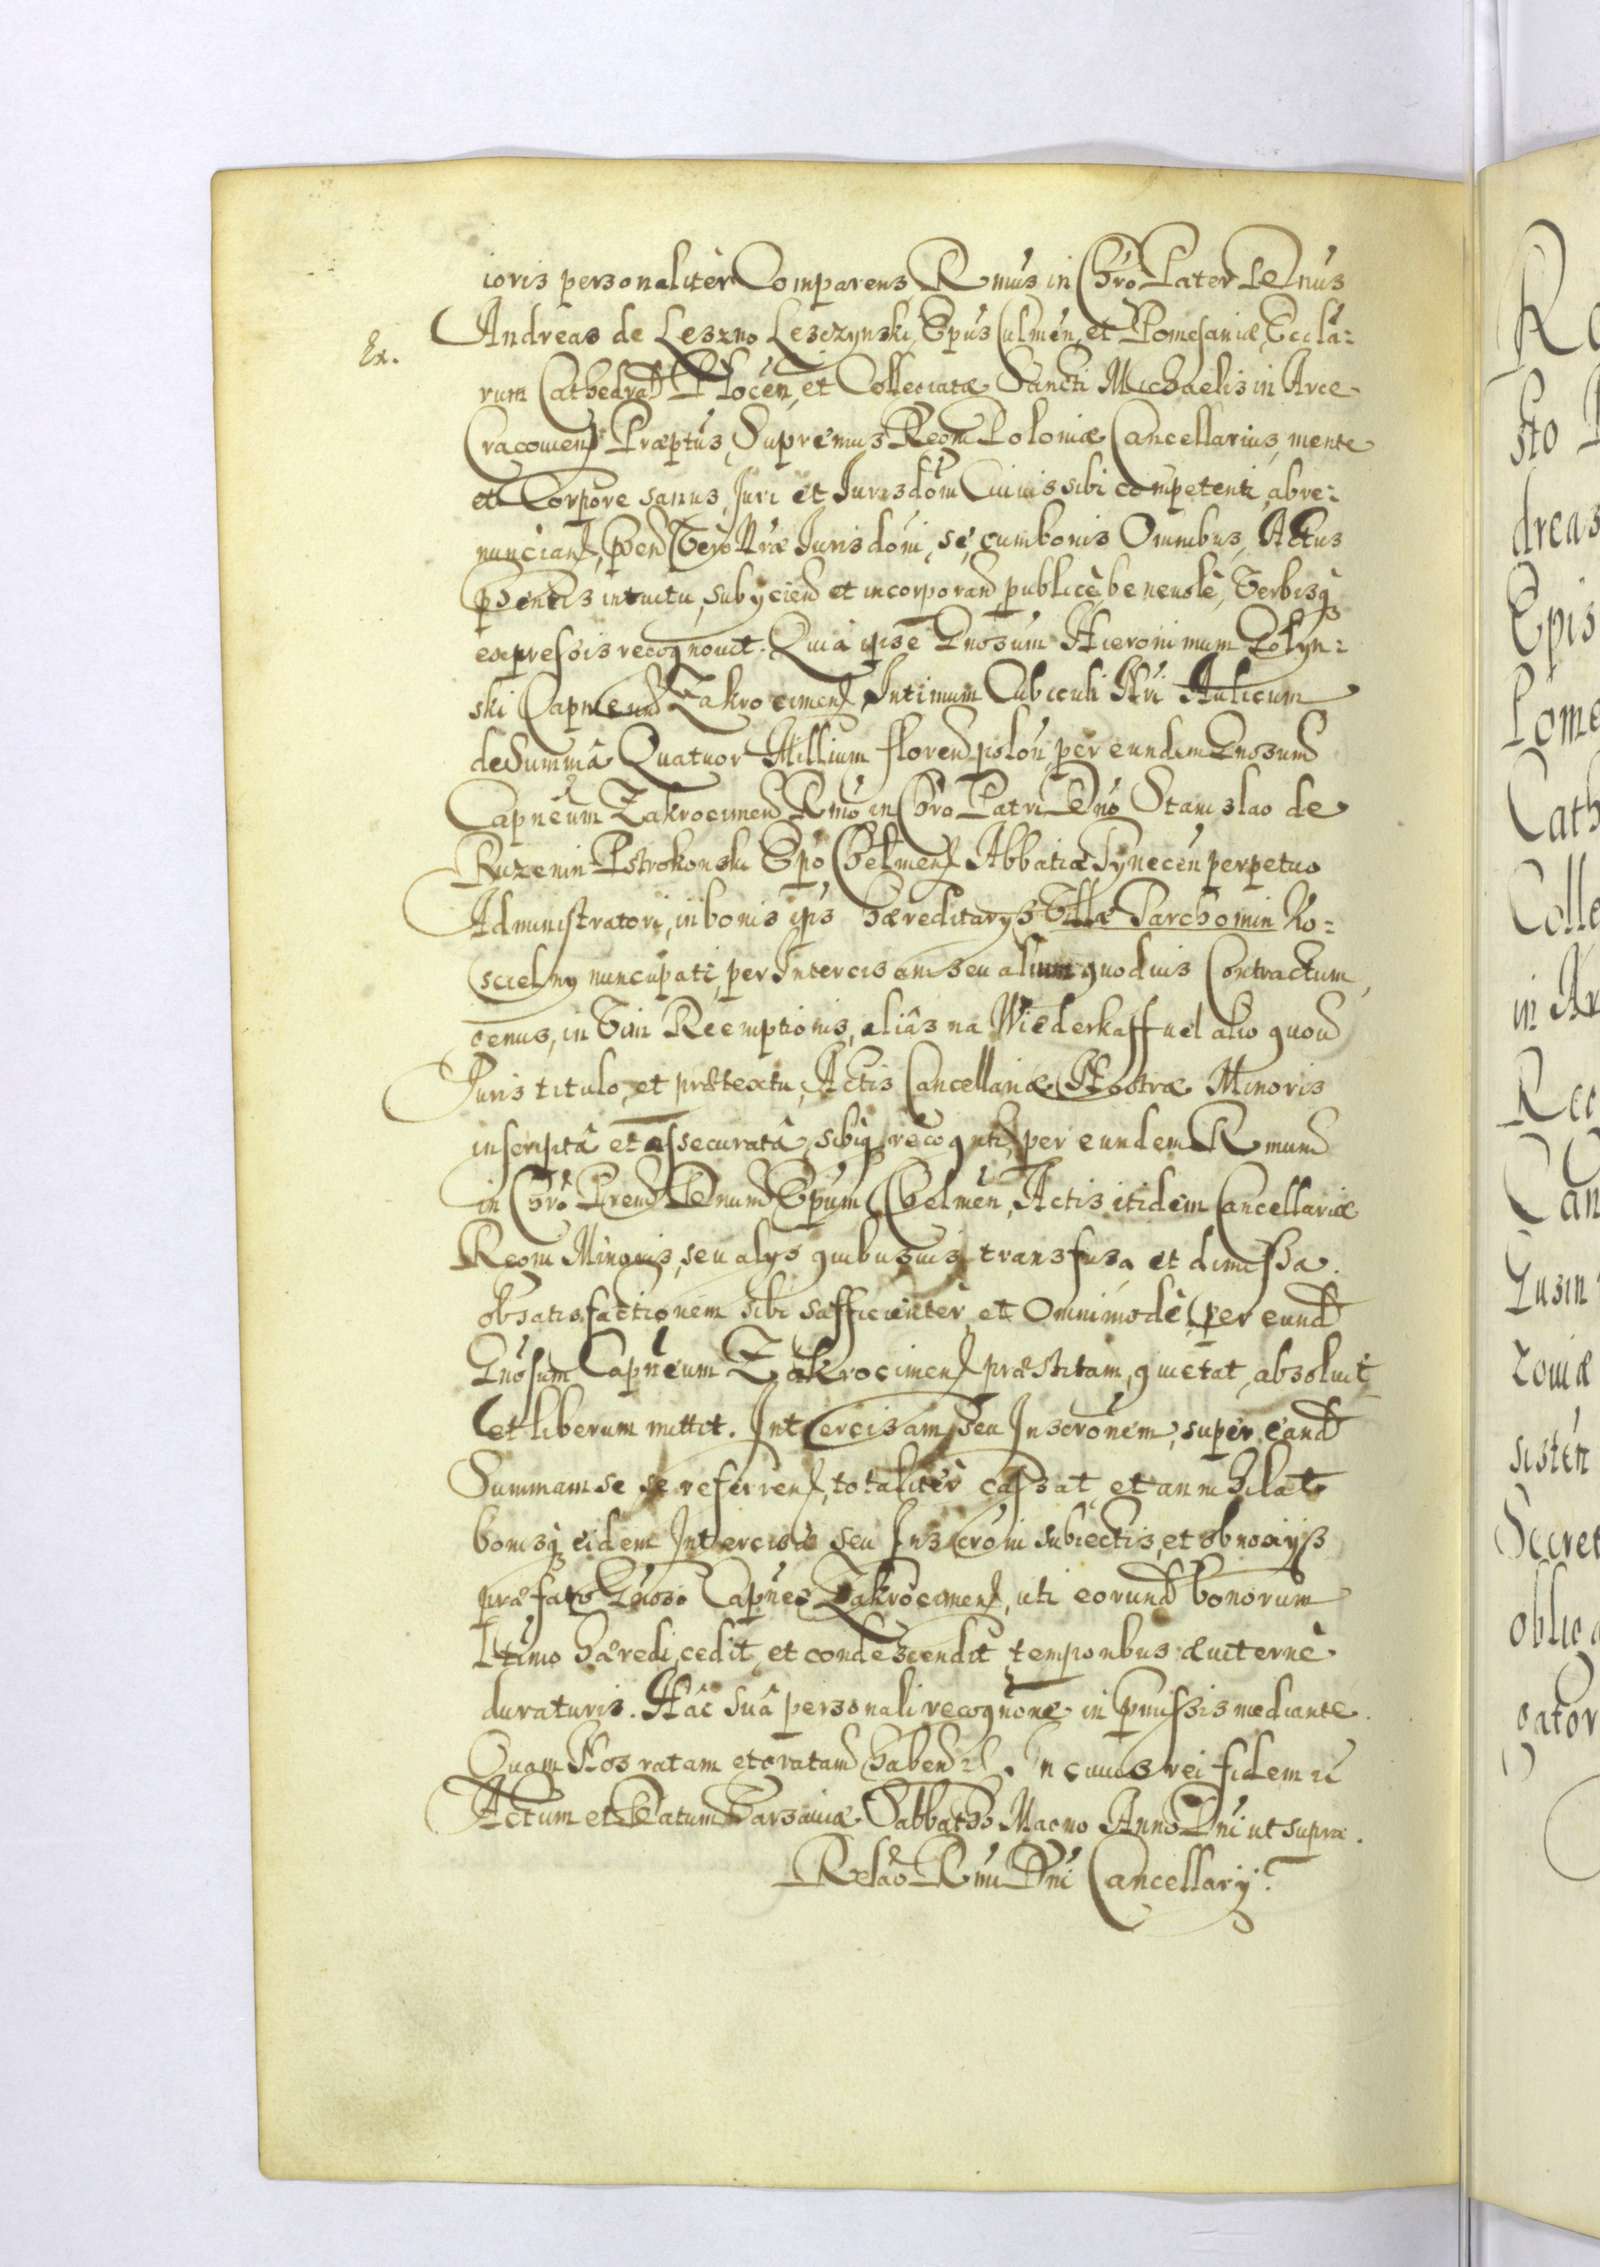 ioris personaliter Comparens Rmus in Chro Pater Dnus
Andreas de Leszno Lesczynski, Epus Culmen, et Pomesaniæ, Eccla-
Ex.
rum Cathedral Plocen, et Collegiatæ Sancti Michaelis in Arce
Cracovien Præptus, Supremus Regni Poloniæ Cancellarius, mente
et Corpore sanus, Juri et Jurisdom Cuivis sibi competenti, abre-
nuncians, Vero Nræ Jurisdoni, se, cum bonis Omnibus, Actus
pñtis intuitu, subyciens et incorporans publicè, benevolè, Verbisq
expressis recognovit. Quia ipse Gnosum Hieronimum Golyn-
ski Capneum Zakrocimen, Intimum Cubiculi Nri Aulicum
de Summâ Quatuor Millium floren polon, per eundem Gnosum
Capneum Zakrocimen Rmo in Chro Patri Dno Stanislao de
Ruzenin Pstrokonski Epo Chelmen Abbatiæ Tynecen perpetuo
Administratori, in bonis ipis hæreditarys Villæ Parchomin Ko-
scielny nuncupati, per Intercisam seu alium quodvis Contractum,
genus, in Vim Reemptionis, aliâs na Wiederkaff vel alio quovis
Juris titulo, et prætextu, Actis Cancellariæ Nostræ Minoris
inscriptâ et assecuratâ, sibiq recognit, per eundem Rmum
in Chro Prem Dnum Epum Chelmen, Actis itidem Cancellariæ
Regni Minoris, seu alys quibusvis transfusa et dimissa.
ob satisfactionem sibi sufficienter, et Omnimodè, per eund
Gnosum Capneum Zakrocimen præstitam, quietat, absolvit
et liberum mittit. Intercisam seu Inscronem, super eand
Summam se se referren, totaliter cassat et annihilat
bonisq eidem Intercisæ seu Inscroni subiectis, et obnoxyss
præfato Gnoso Capneo Zakrocimen, uti eorund bonorum
Ltimo hæredi, cedit, et condescendit, temporibus æviternè
duraturis. Hâc suâ personali recognone in pmissis mediante.
Quam Nos ratam et gratam haben etc. In cuius rei fidem etc
Actum et Datum Varsaviæ Sabbatho Magno Anno Dni ut supra.
Relao Rmi Dni Cancellary.